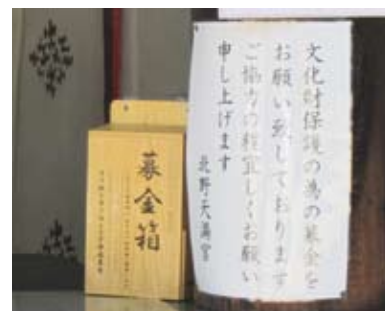 文化財保護の為の募金を
お願い致しております
ご協力の程宜しくお願い
申し上げます
北野天満宮
募金箱